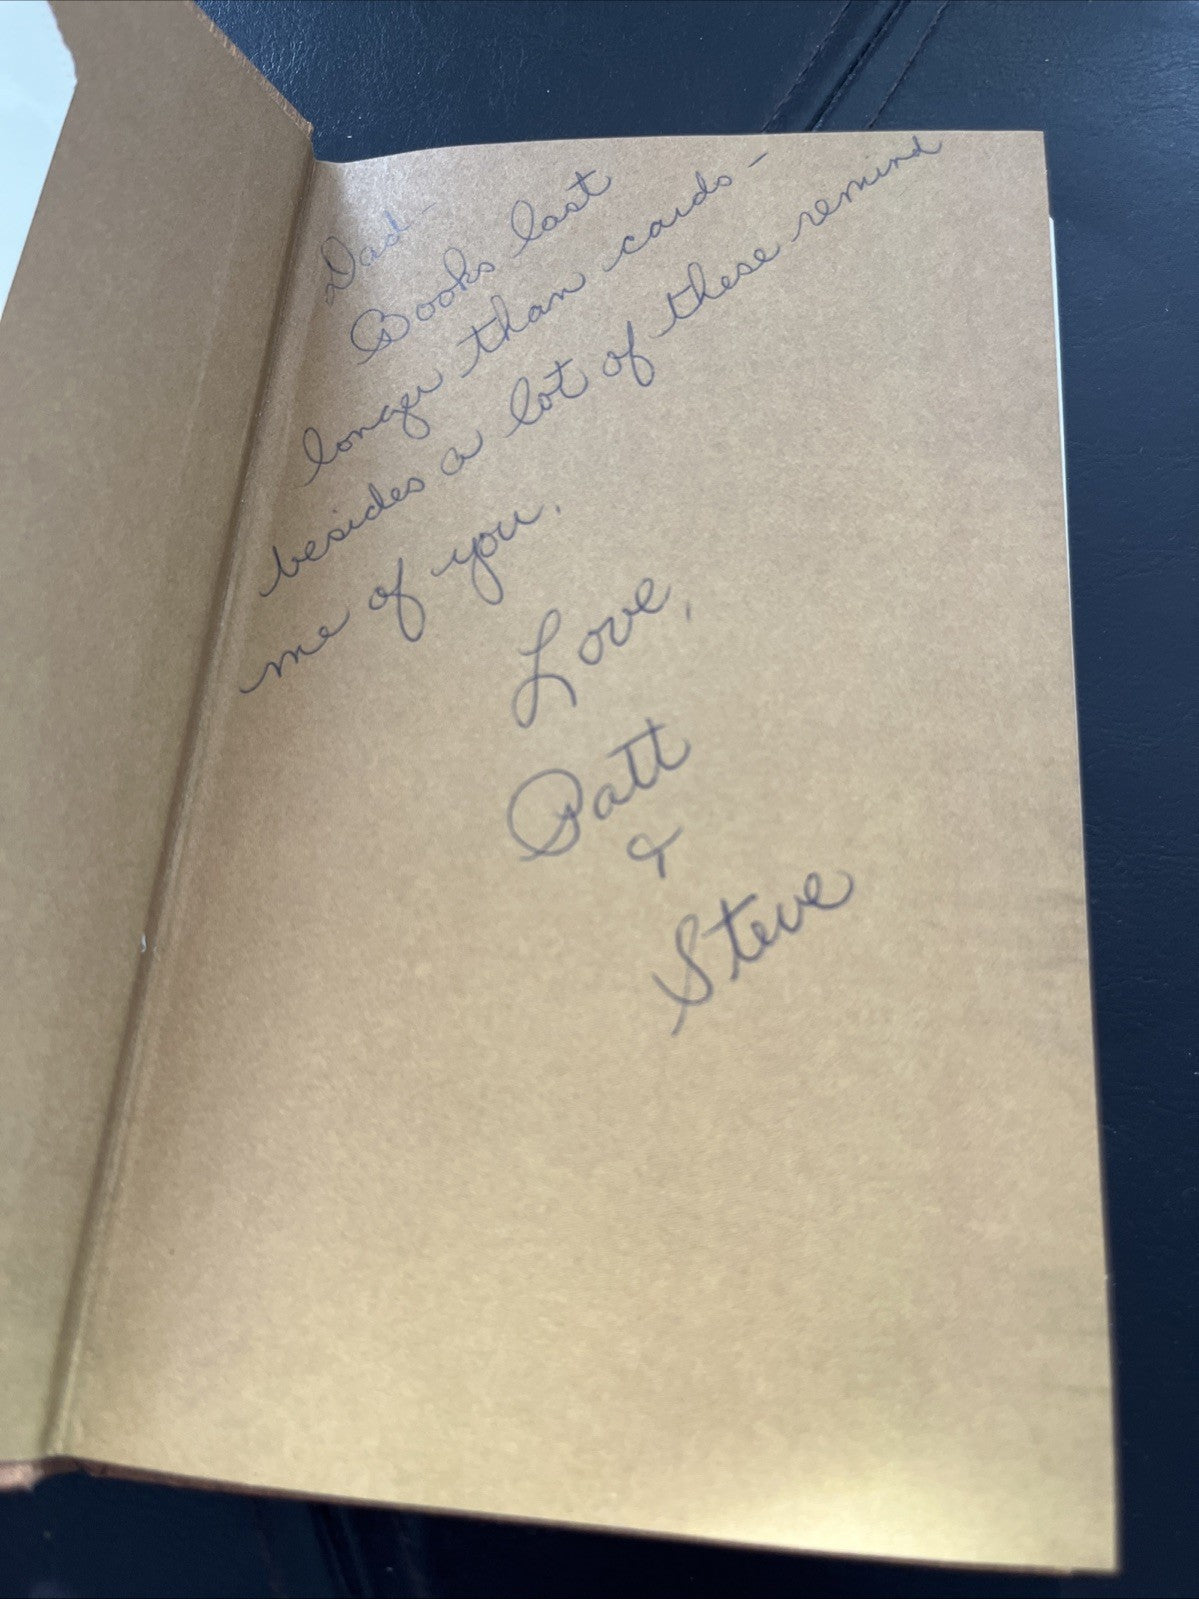 Dad -
Books last
longer than cards -
besides a lot of these remind
me of you.
Love,
Patt
&
Steve